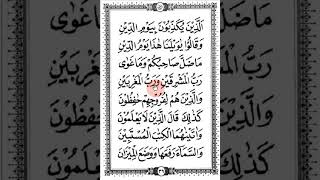 الَّذِيْنَ يُكَذِّبُوْنَ بِيَوْمِ الدِّيْنِ
وَقَالُوْا يٰوَيْلَنَا هٰذَا يَوْمُ الدِّيْنِ
مَاضَلَّ صَاحِبُكُمْ وَمَا غَوٰى
رَبُّ الْمَشْرِقَيْنِ وَرَبُّ الْمَغْرِبَيْنِ
وَالَّذِيْنَ هُمْ لِفُرُوْجِهِمْ حٰفِظُوْنَ
كَذٰلِكَ قَالَ الَّذِيْنَ لَا يَعْلَمُوْنَ
وَاٰتَيْنٰهُمَا الْكِتٰبَ الْمُسْتَبِيْنَ
وَالسَّمَآءَ رَفَعَهَا وَوَضَعَ الْمِيْزَانَ